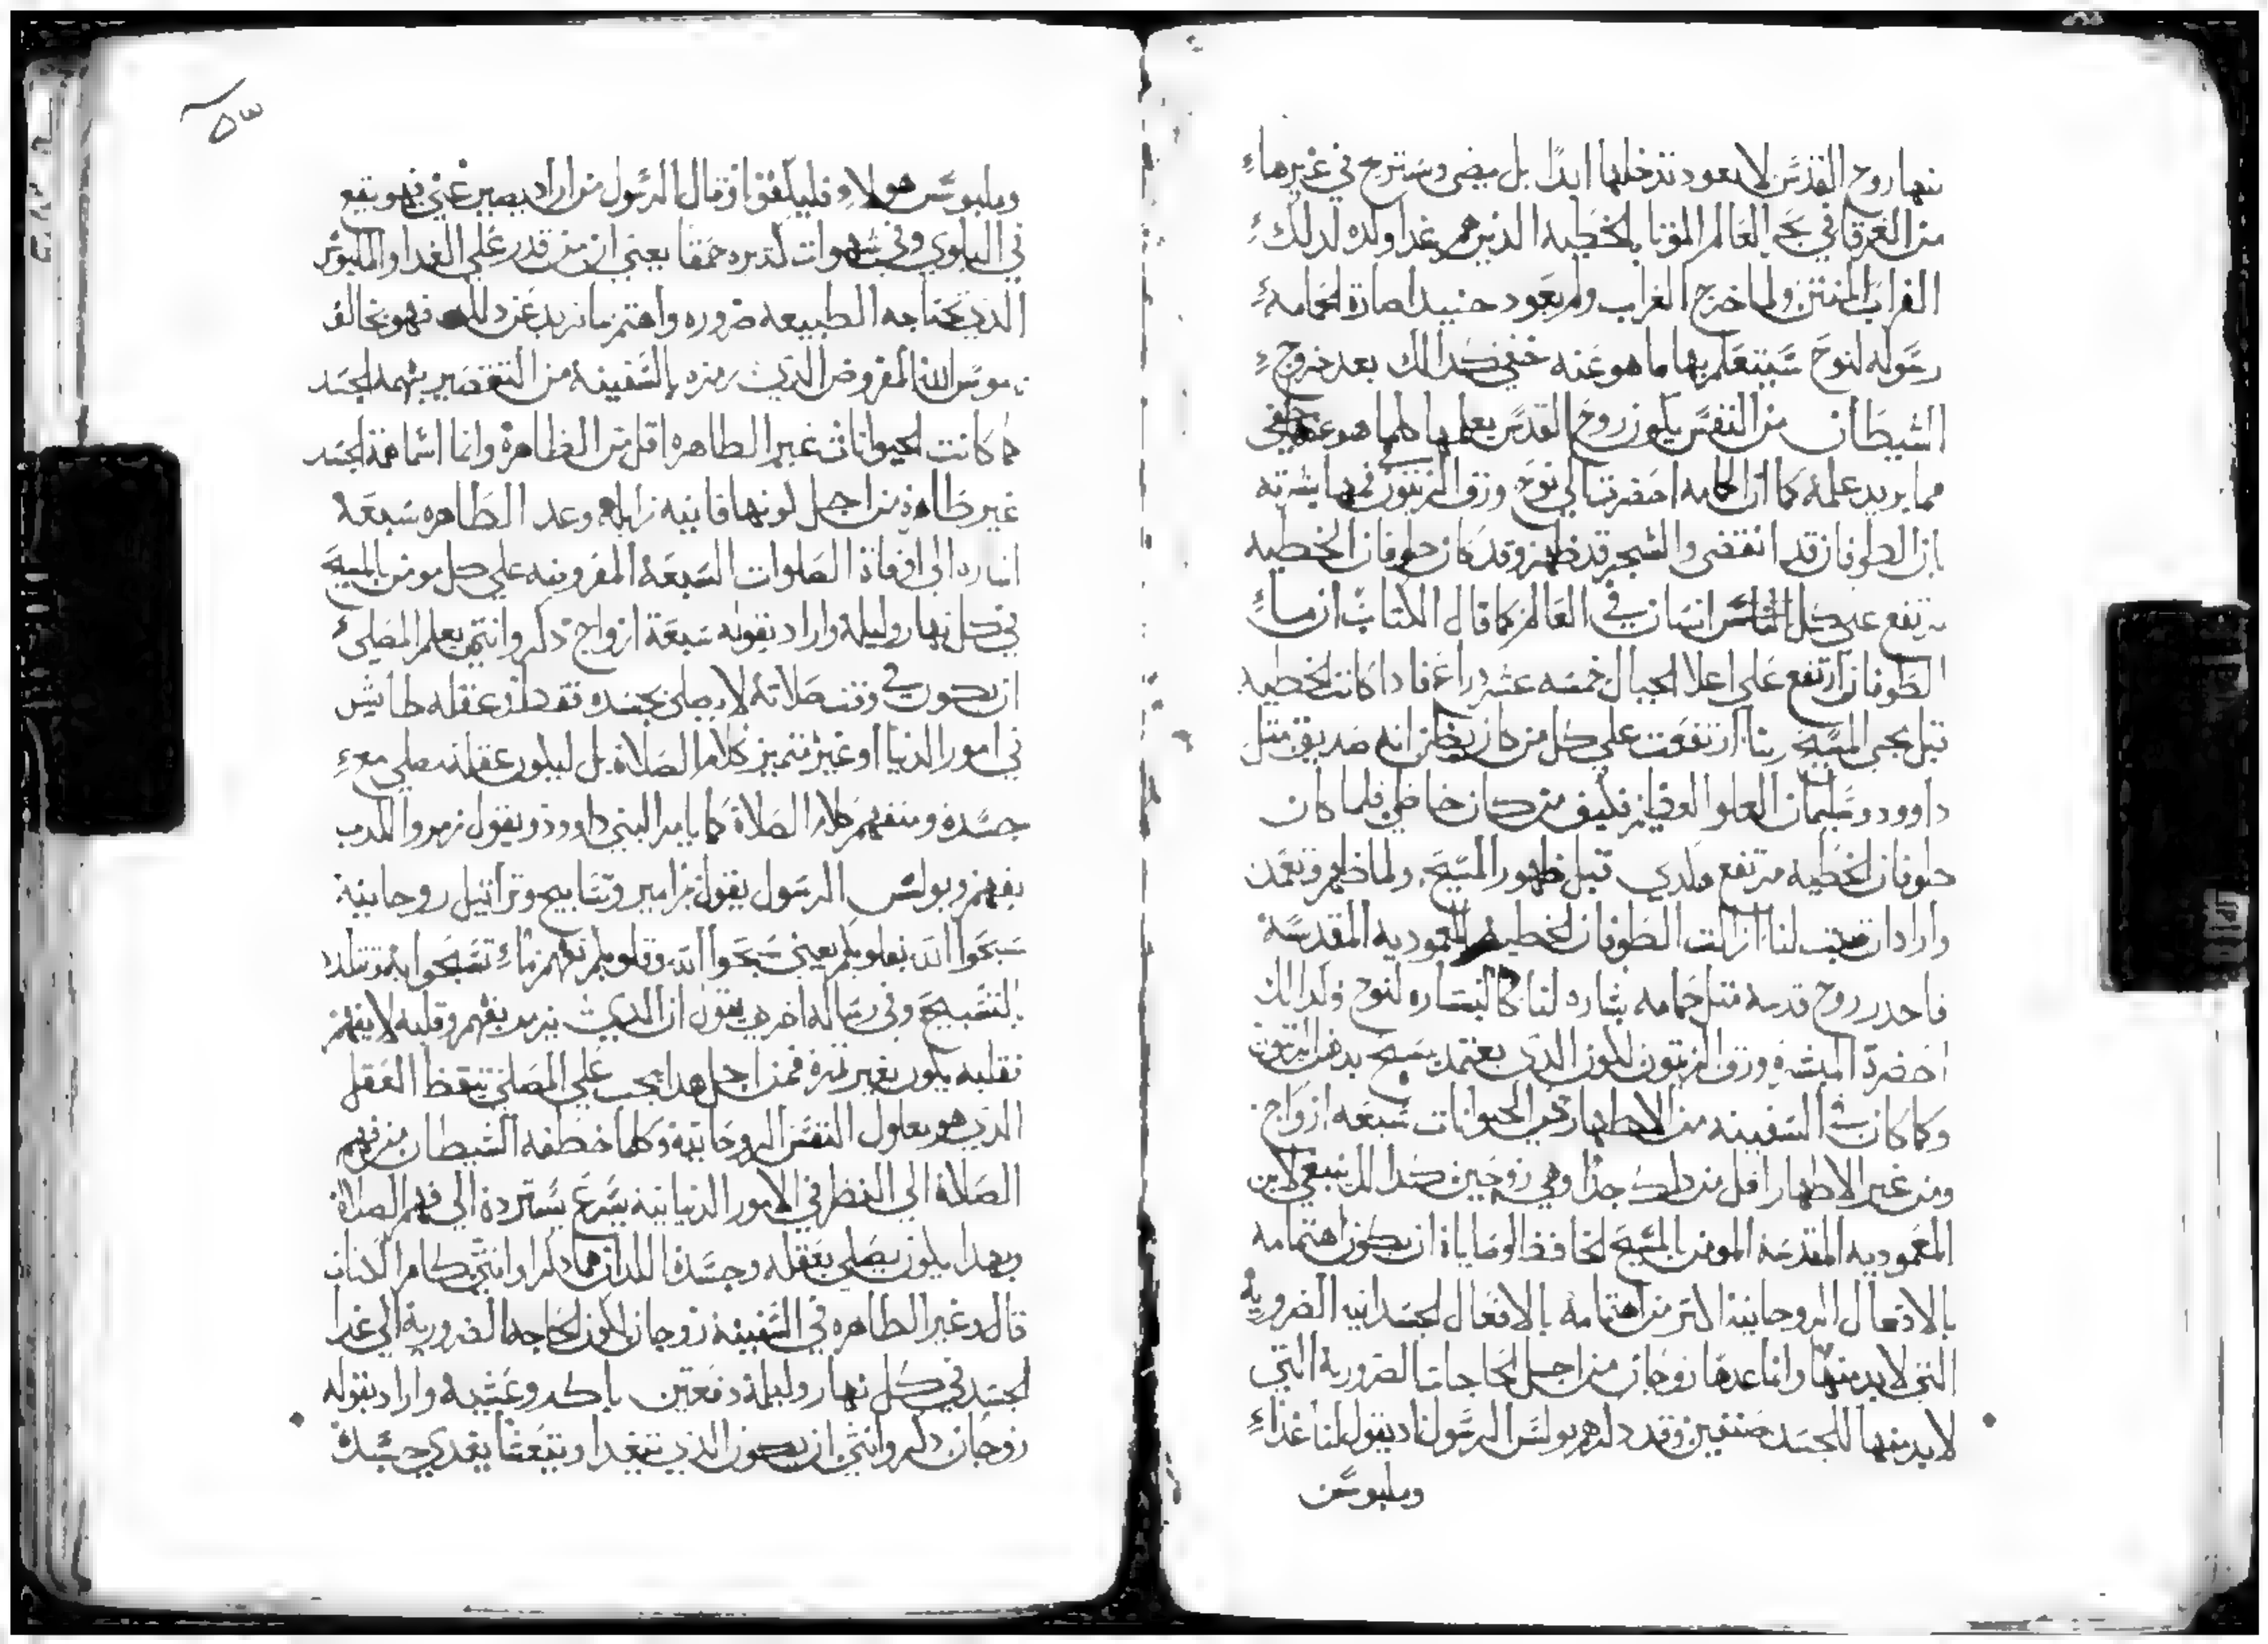 منها روح القدس لا يعود تدخلها ابدًا بل يمضي وستريح في غيرها
من الغرقا في بحر العالم الموتا بالخطيه الذين هم غدا ولده لدلك
الغراب المنتن ولما خرج الغراب ولم يعود حنيدا صارة الحمامه
رسوله لنوح سيتعلم بها ما هو عنه خفي كدالك بعد خروج
الشيطان من النفس يكون روح القدس يعلمها كلما هو عنها خفي
مما يريد علمه كما ان الحمامه احضرت الي نوح ورق الزيتون في فمها بشرته
بان الطوفان قد انقضي والشجر قد ظهر وقد كان طوفان الخطيه
مرتفع علي كل الناس انسان في العالم كما قال الكتاب ان ماء
الطوفان ارتفع علي اعلا الجبال خمسه عشر دراع فادا كانت الخطيه
قبل مجي المسيح ربنا ارتفعت علي كل من كان يظن انه صديق مثل
داوود وسليمان العلو العظيم فكيف من كان خاطي فلما كان
طوفان الخطيه مرتفع هكدي قبل ظهور المسيح ولما ظهر وتعمد
واراد ان يهب لنا ازالت الطوفان الخطيه بالمعموديه المقدسة
فاحدر روح قدسه مثل حمامه بشاره لنا كالبشاره لنوح وكدالك
احضرة المبشره ورق الزيتون لكون الدي يعتمد يمسح بدهن الزيتون
وكما كان في السفينه من الاطهار في الحيوانات سبعه ازواج
ومن غير الاطهار اقل من دلك جدًا وهي زوجين كدالك ينبغي لابن
المعموديه المقدسه المومن بالمسيح الحافظ لوصاياة ان يكون اهتمامه
بالافعال الروحانية اكتر من اهتمامه بالافعال الجسدانيه الضروريه
التي لابد منها وانما عدها زوجان من اجل الحاجات الضرورية التي
لابد منها للجسد صنفين وقد دكرهم بولس الرسول اد يقول لنا غذاء
وملبوس
٥٣
وملبوس هولاء فليكفونا وقال الرسول من اراد يصير غني فهو يقع
في البلوي وفي شهوات كتيره حمقا يعني ان من قدر علي الغدا والملبوس
الذي تحتاجه الطبيعه ضروره واهتم ما يزيد عن دلك فهو يخالف
ناموس الله المفروض الدي رمزه بالسفينة من التقصير بهمد الجسد
كما كانت الحيوانات غير الطاهره اقل من الطاهرة وانما اسما هذا الجسد
غير طاهرة من اجل كونها فانيه زايله وعد الطاهره سبعة
اشاره الي اوقاة الصلوات السبعة المفروضه علي كل مومن بالمسيح
في كل نهار وليلة واراد بقوله سبعة ازواج دكر وانتي يعلم المصلي
ان يكون في وقت صلاته لا يصلي بجسده فقط وعقله طايش
في امور الدنيا او غير متميز كلام الصلاة بل ليكون عقله يصلي مع
جسده ومتفهم كلام الصلاة كما يامر النبي داوود ويقول زمروا للرب
بفهم وبولس الرسول يقول مزامير وتسابيح وتراتيل روحانية
سبحوا الله بقلوبكم يعني سبحوا الله وقلوبكم تفهم ماء تسبحوا به
بالتسبيح وفي رساله اخري يقول ان الدي يزمر بفمه وقلبه لا يفهم
فقلبه يكون بغير تمرة فمن اجل هدا يجب علي المصلي يتيقظ العقل
الدي هو بعلول النفس الروحانية وكلما خطفه الشيطان من فهم
الصلاة الي النظر في الامور الدنيانيه يسرع يسترده الي فهم الصلاة
وبهدا يكون يصلي بعقله وجسدة اللدان هما دكرا وانتي كما امر الكتاب
قال وغير الطاهره في السفينة زوجان لكون الحاجه الضرورية الي غدا
الجسد في كل نهار وليلة دفعتين باكر وعشية واراد بقوله
زوجان دكر وانتي ان يكون الذي يتغدا ويتعشا يغدي جسدة